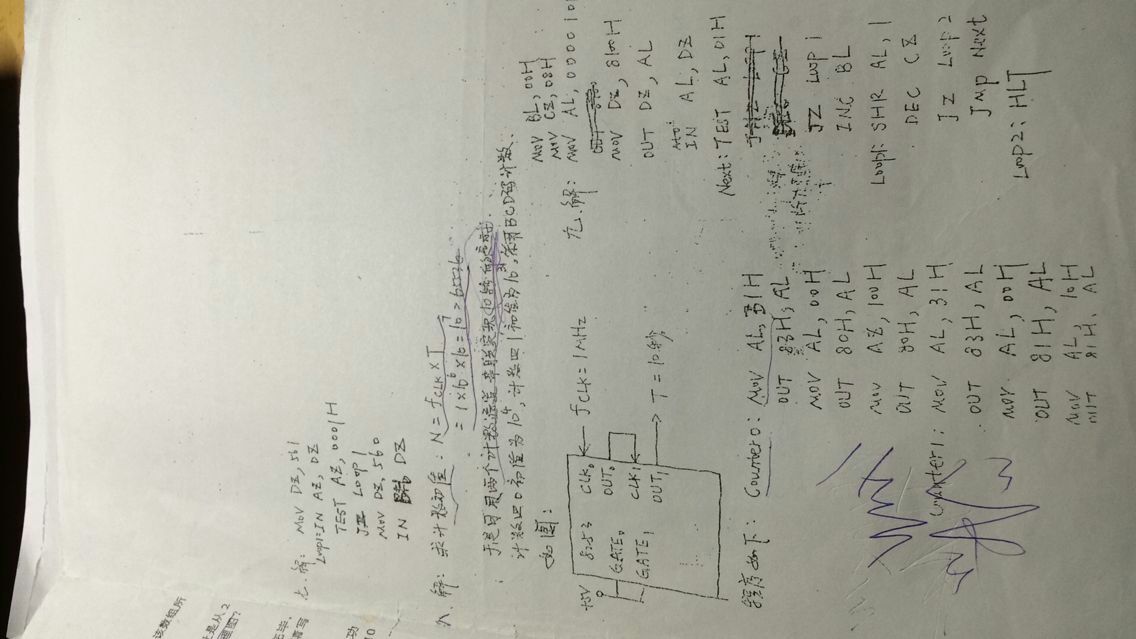 七. 解: MOV DZ, 561
Loop1: IN AZ, DZ
TEST AZ, 0001H
JZ Loop1
MOV DZ, 560
IN DZ
八. 解: 求计数初值: N = fCLK × T
= 1×10⁶×10 = 10⁷ > 65536
于是用两个计数通道串联实现10秒的定时.
计数器0初值为10⁴, 计数器1初值为10³, 采用BCD码计数.
如图:
+5V
8253
GATE₀
GATE₁
CLK₀
OUT₀
CLK₁
OUT₁
fCLK = 1MHz
T = 10秒
程序如下: Counter0: MOV AL, 31H
OUT 83H, AL
MOV AL, 00H
OUT 80H, AL
MOV AZ, 100H
OUT 80H, AL
Counter1: MOV AL, 31H
OUT 83H, AL
MOV AL, 00H
OUT 81H, AL
MOV AL, 10H
OUT 81H, AL
九. 解: MOV BL, 00H
MOV CZ, 08H
MOV AL, 0000101
MOV DZ, 8100H
OUT DZ, AL
IN AL, DZ
Next: TEST AL, 01H
JZ Loop1
INC BL
Loop1: SHR AL, 1
DEC CZ
JZ Loop2
Jmp Next
Loop2: HLT
该数组所
是从2
图?
毕.
请写
功
10